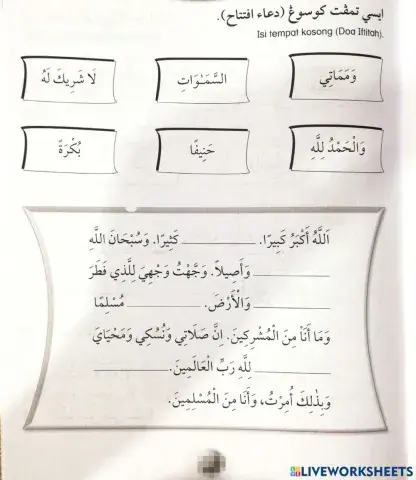 ايسي تمڤت كوسوڠ (دعاء افتتاح).
Isi tempat kosong (Doa Iftitah).
وَمَمَاتِي السَّمَـٰوَاتِ لَا شَرِيكَ لَهُ
وَالْحَمْدُ لِلَّهِ حَنِيفًا بُكْرَةً
اَللَّهُ أَكْبَرُ كَبِيرًا. __________ كَثِيرًا. وَسُبْحَانَ اللَّه
__________ وَأَصِيلاً. وَجَّهْتُ وَجْهِيَ لِلَّذِي فَطَرَ
__________ وَالْأَرْضَ. __________ مُسْلِمًا
وَمَا أَنَا۠ مِنَ الْمُشْرِكِينَ. اِنَّ صَلَاتِي وَنُسُكِي وَمَحْيَايَ
__________ لِلَّهِ رَبِّ الْعَالَمِينَ. __________
وَبِذَٰلِكَ اُمِرْتُ، وَأَنَا مِنَ الْمُسْلِمِينَ.
LIVEWORKSHEETS